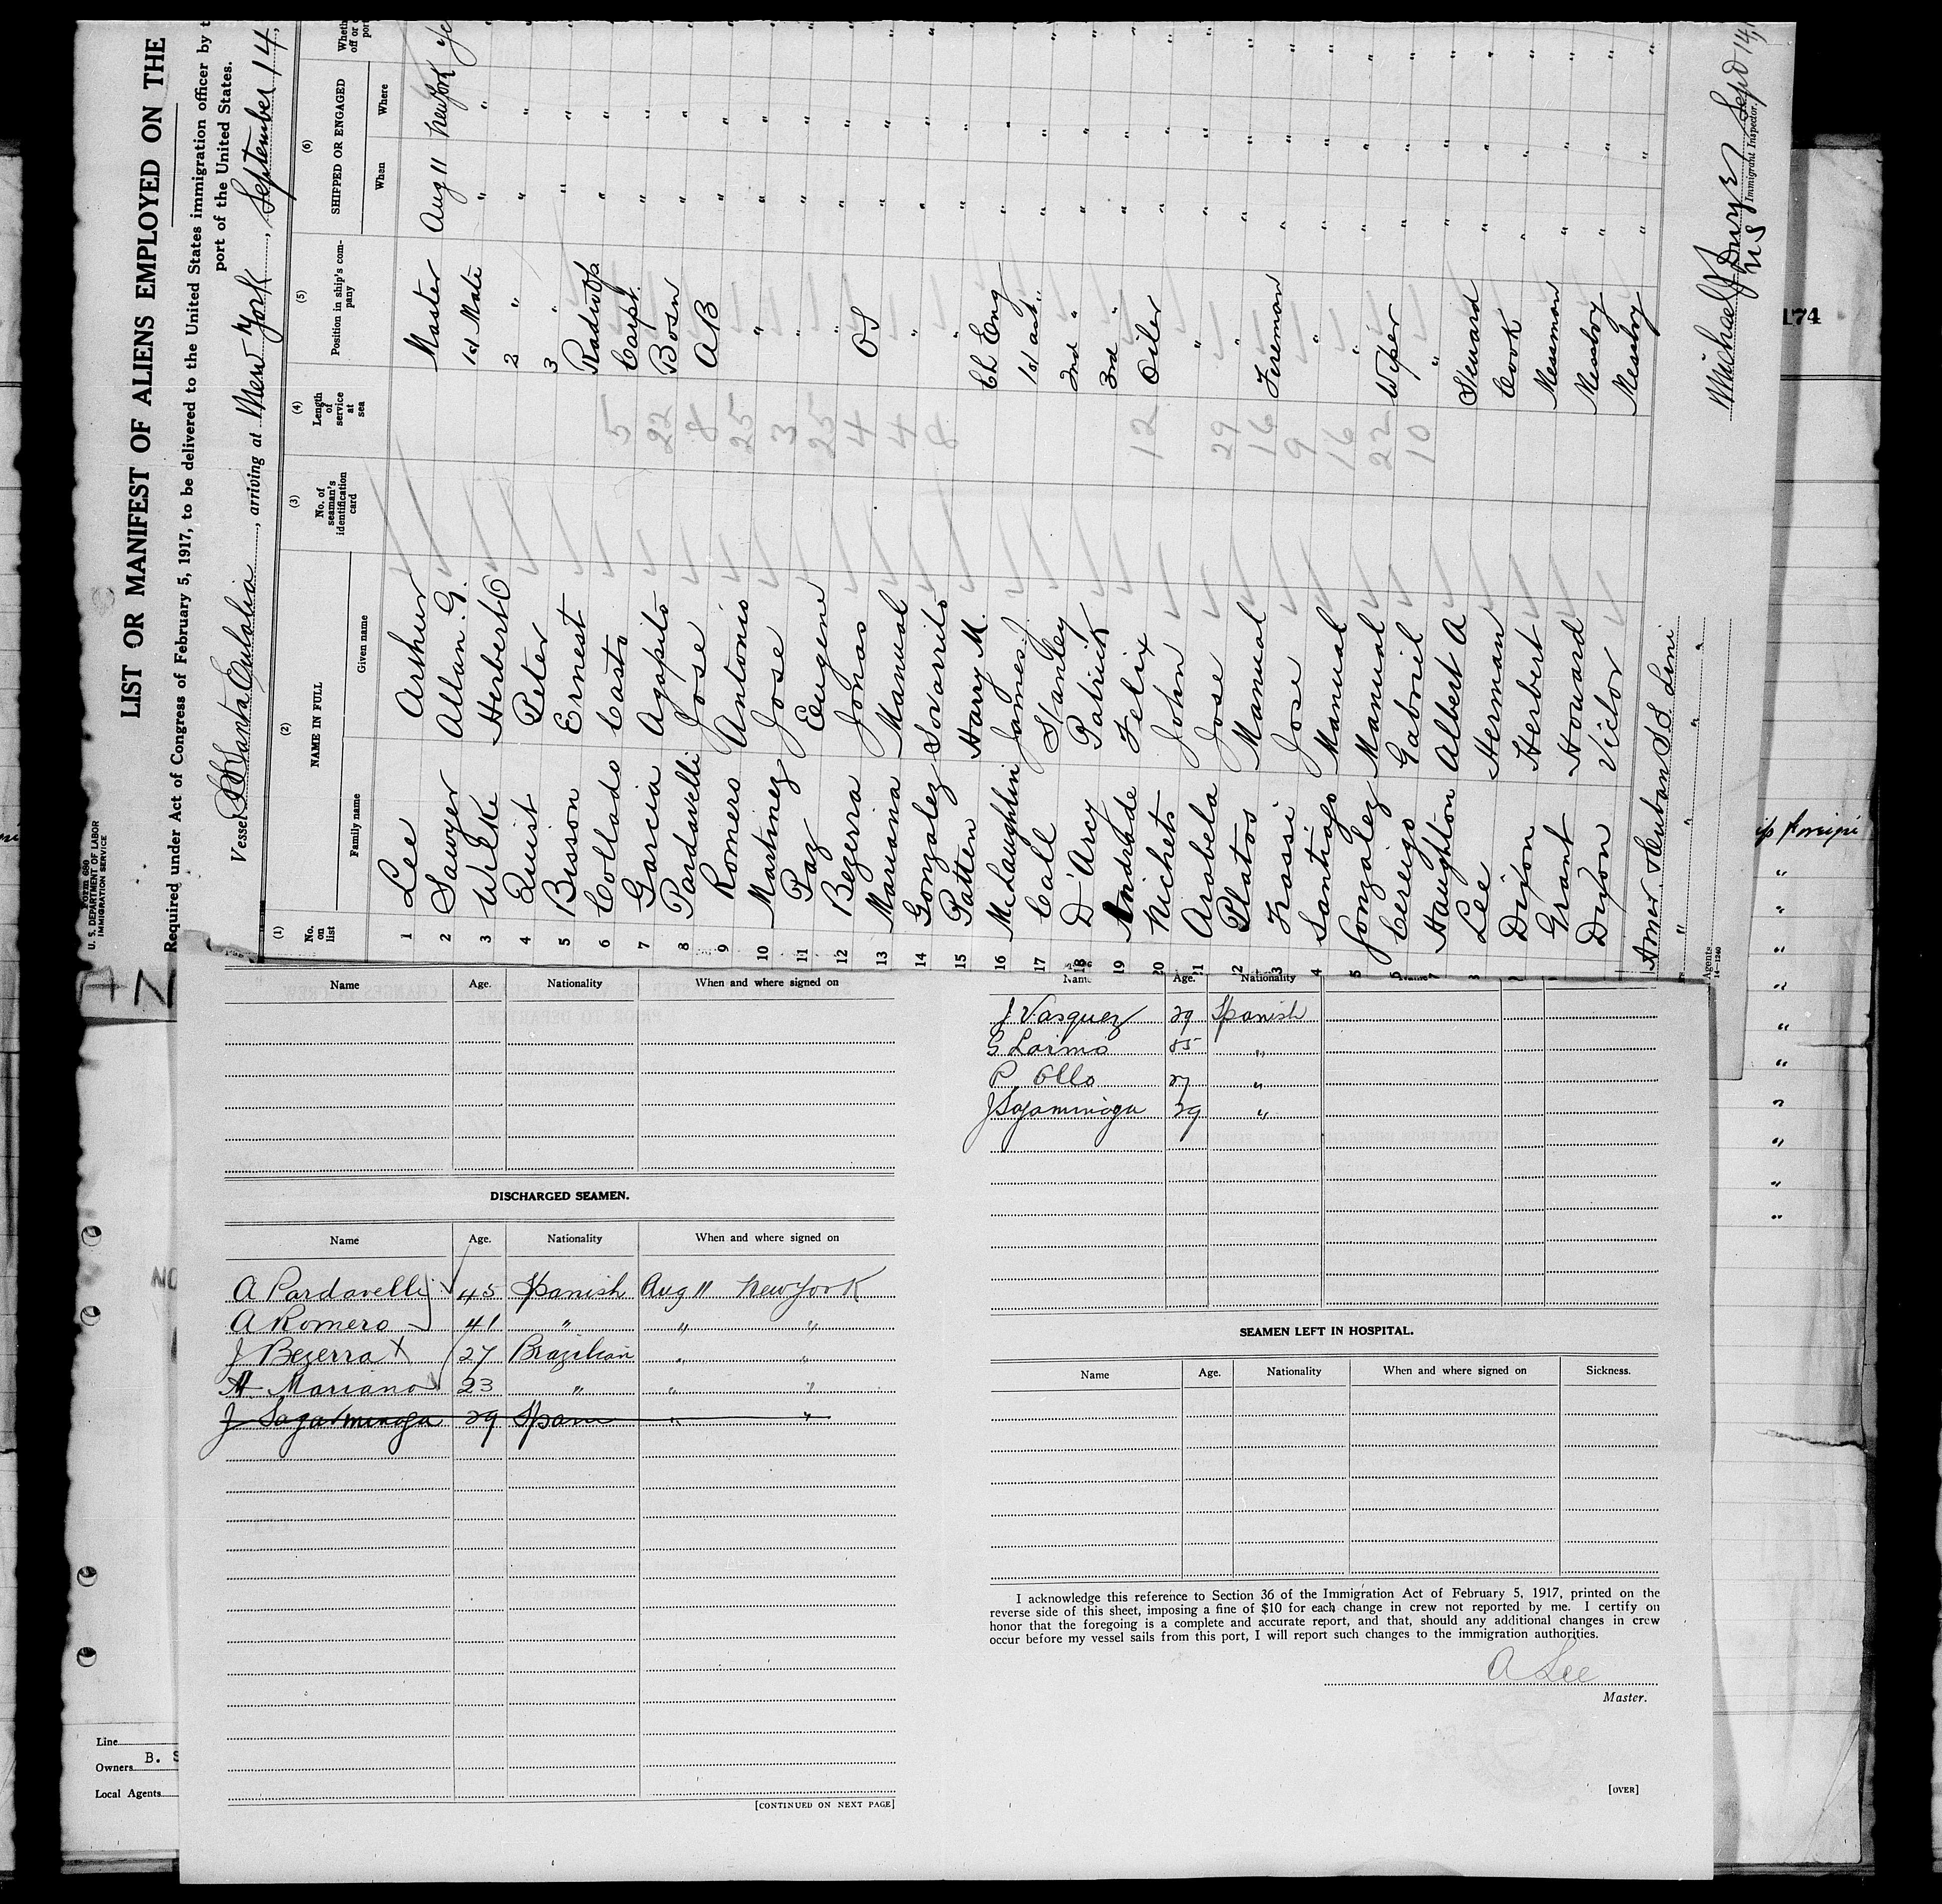 Form 680
U. S. DEPARTMENT OF LABOR
IMMIGRATION SERVICE
LIST OR MANIFEST OF ALIENS EMPLOYED ON THE
Required under Act of Congress of February 5, 1917, to be delivered to the United States immigration officer by t
port of the United States.
Vessel SS Santa Eulalia, arriving at New York, September 14,
(1) No. on list
(2) NAME IN FULL
Family name Given name
(3) No. of seaman's identification card
(4) Length of service at sea
(5) Position in ship's company
(6) SHIPPED OR ENGAGED
When Where
1 Lee Arthur Master Aug 11 New York
2 Sawyer Allan. G. 1st Mate " "
3 Welke Herbert O 2 " " "
4 Quist Peter 3 " " "
5 Bisson Ernest " "
6 Collado Casto 5 Carpt. " "
7 Garcia Agapito 22 Bosn " "
8 Pardavelli Jose 8 AB " "
9 Romero Antonio 25 " " "
10 Martinez Jose 3 " " "
11 Paz Eugene 25 " " "
12 Bezerra Jonas 4 OS " "
13 Mariana Manual 4 " " "
14 Gonzalez 8 " " "
15 Patten Harry M. Ch Eng " "
16 McLaughlin James J. 1st ast. " "
17 Call Stanley 2nd " " "
18 D'Arcy Patrick 3rd " " "
19 Andrade Felix 12 Oiler " "
20 Nichets John " " "
21 Arabela Jose 29 " " "
2 Platos Manual 16 Fireman " "
3 Frossi Jose 9 " "
4 Santiago Manual 16 " " "
5 Gonzalez Manual 22 Wiper " "
6 Cereigo Gabriel 10 " " "
7 Haughton Albert A Steward " "
8 Lee Herman Cook " "
Dixon Herbert Messman " "
Grant Howard Messboy " "
Dixon Victor Messboy " "
Amer. Cuban SS Line
" " " "
Agents
14-1240
Michael J Dwyer Sept 14,
US Immigrant Inspector.
174
Name Age. Nationality When and where signed on
DISCHARGED SEAMEN.
Name Age. Nationality When and where signed on
A Pardavelli 45 Spanish Aug 11 New York
A Romero 41 " " "
J Bezerra X 27 Brazilian " "
M Mariano 23 " " "
J Sagarminaga 29 Spain " "
[CONTINUED ON NEXT PAGE]
Name Age. Nationality
J Vasquez 29 Spanish
G Loimo "
P. Ollo 27 "
J Sagaminaga 29 "
SEAMEN LEFT IN HOSPITAL.
Name Age. Nationality When and where signed on Sickness.
I acknowledge this reference to Section 36 of the Immigration Act of February 5, 1917, printed on the
reverse side of this sheet, imposing a fine of $10 for each change in crew not reported by me. I certify on
honor that the foregoing is a complete and accurate report, and that, should any additional changes in crew
occur before my vessel sails from this port, I will report such changes to the immigration authorities.
A Lee
Master.
[OVER]
Line
Owners B.
Local Agents